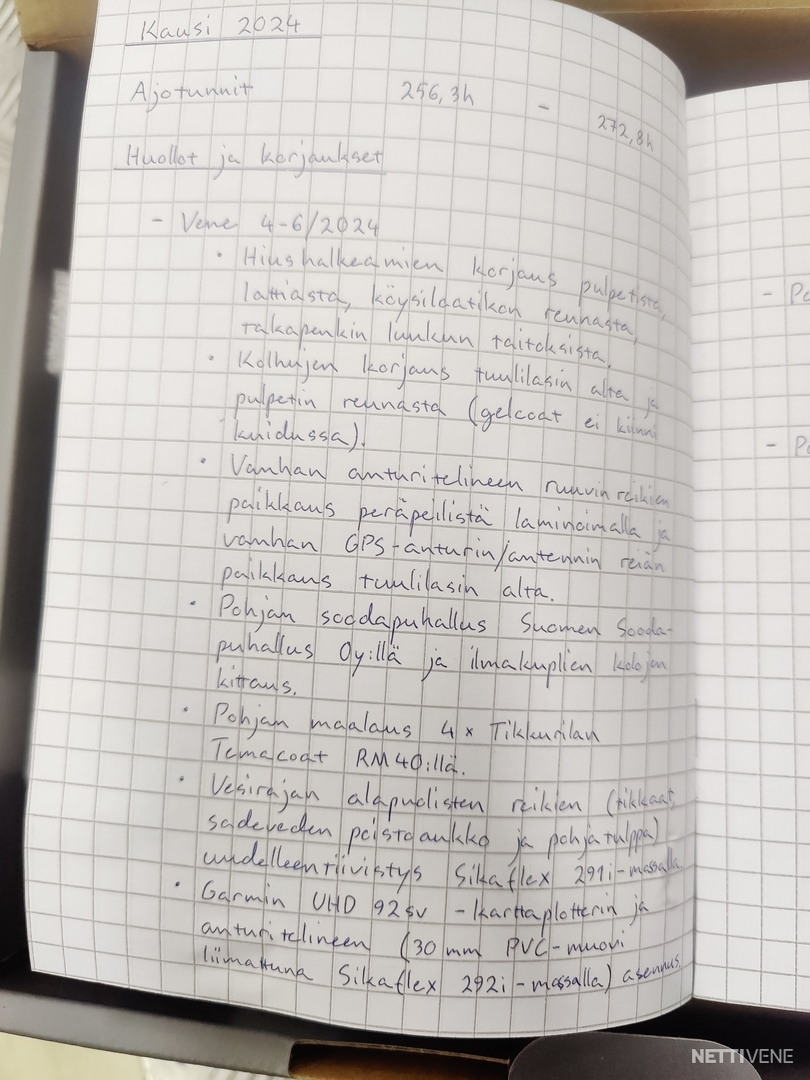 Kausi 2024
Ajotunnit 256,3h - 272,8h
Huollot ja korjaukset
- Vene 4-6/2024
• Hiushalkeamien korjaus pulpetista,
lattiasta, köysilaatikon reunasta,
takapenkin luukun taitoksista.
• Kolhujen korjaus tuulilasin alta ja
pulpetin reunasta (gelcoat ei kiinni
kuidussa).
• Vanhan anturitelineen ruuvin reikien
paikkaus peräpeilistä laminoimalla ja
vanhan GPS-anturin/antennin reiän
paikkaus tuulilasin alta.
• Pohjan soodapuhallus Suomen Sooda-
puhallus Oy:llä ja ilmakuplien kolojen
kittaus.
• Pohjan maalaus 4x Tikkurilan
Temacoat RM40:llä.
• Vesirajan alapuolisten reikien (tikkaat,
sadeveden poistoaukko ja pohjatulppa)
uudelleentiivistys Sikaflex 291i-massalla
• Garmin UHD 92sv -karttaplotterin ja
anturitelineen (30 mm PVC-muovi
liimattuna Sikaflex 292i-massalla) asennus.
- Po
- Po
NETTIVENE